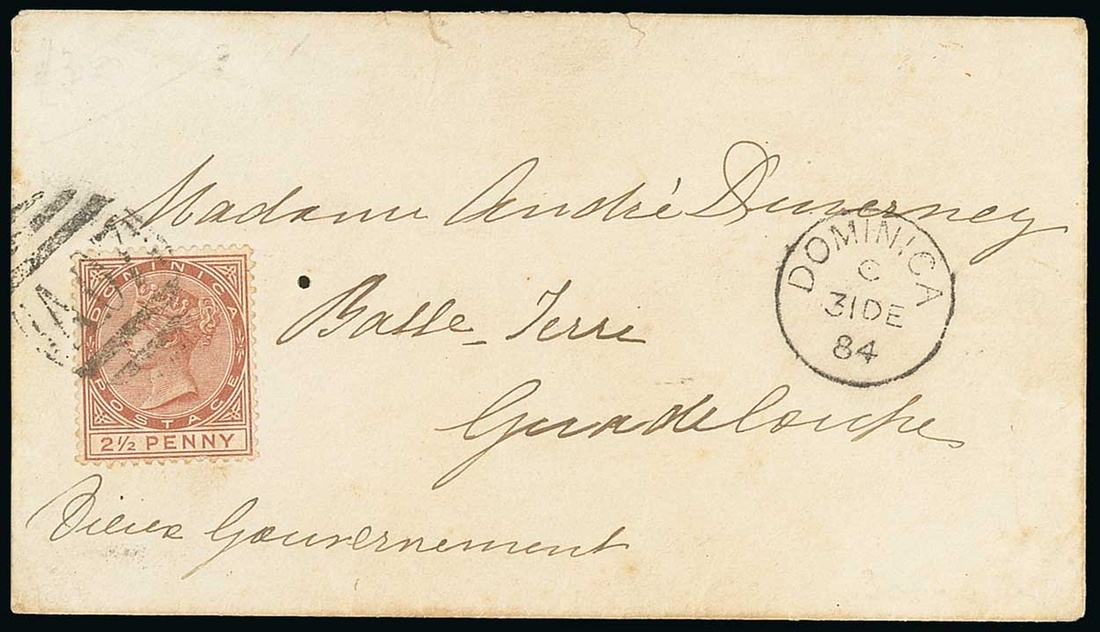 Madame André Duverney
Basse-Terre
Guadeloupe
Vieux Gouvernement
A07
DOMINICA
POSTAGE
2½ PENNY
DOMINICA
C
31 DE
84